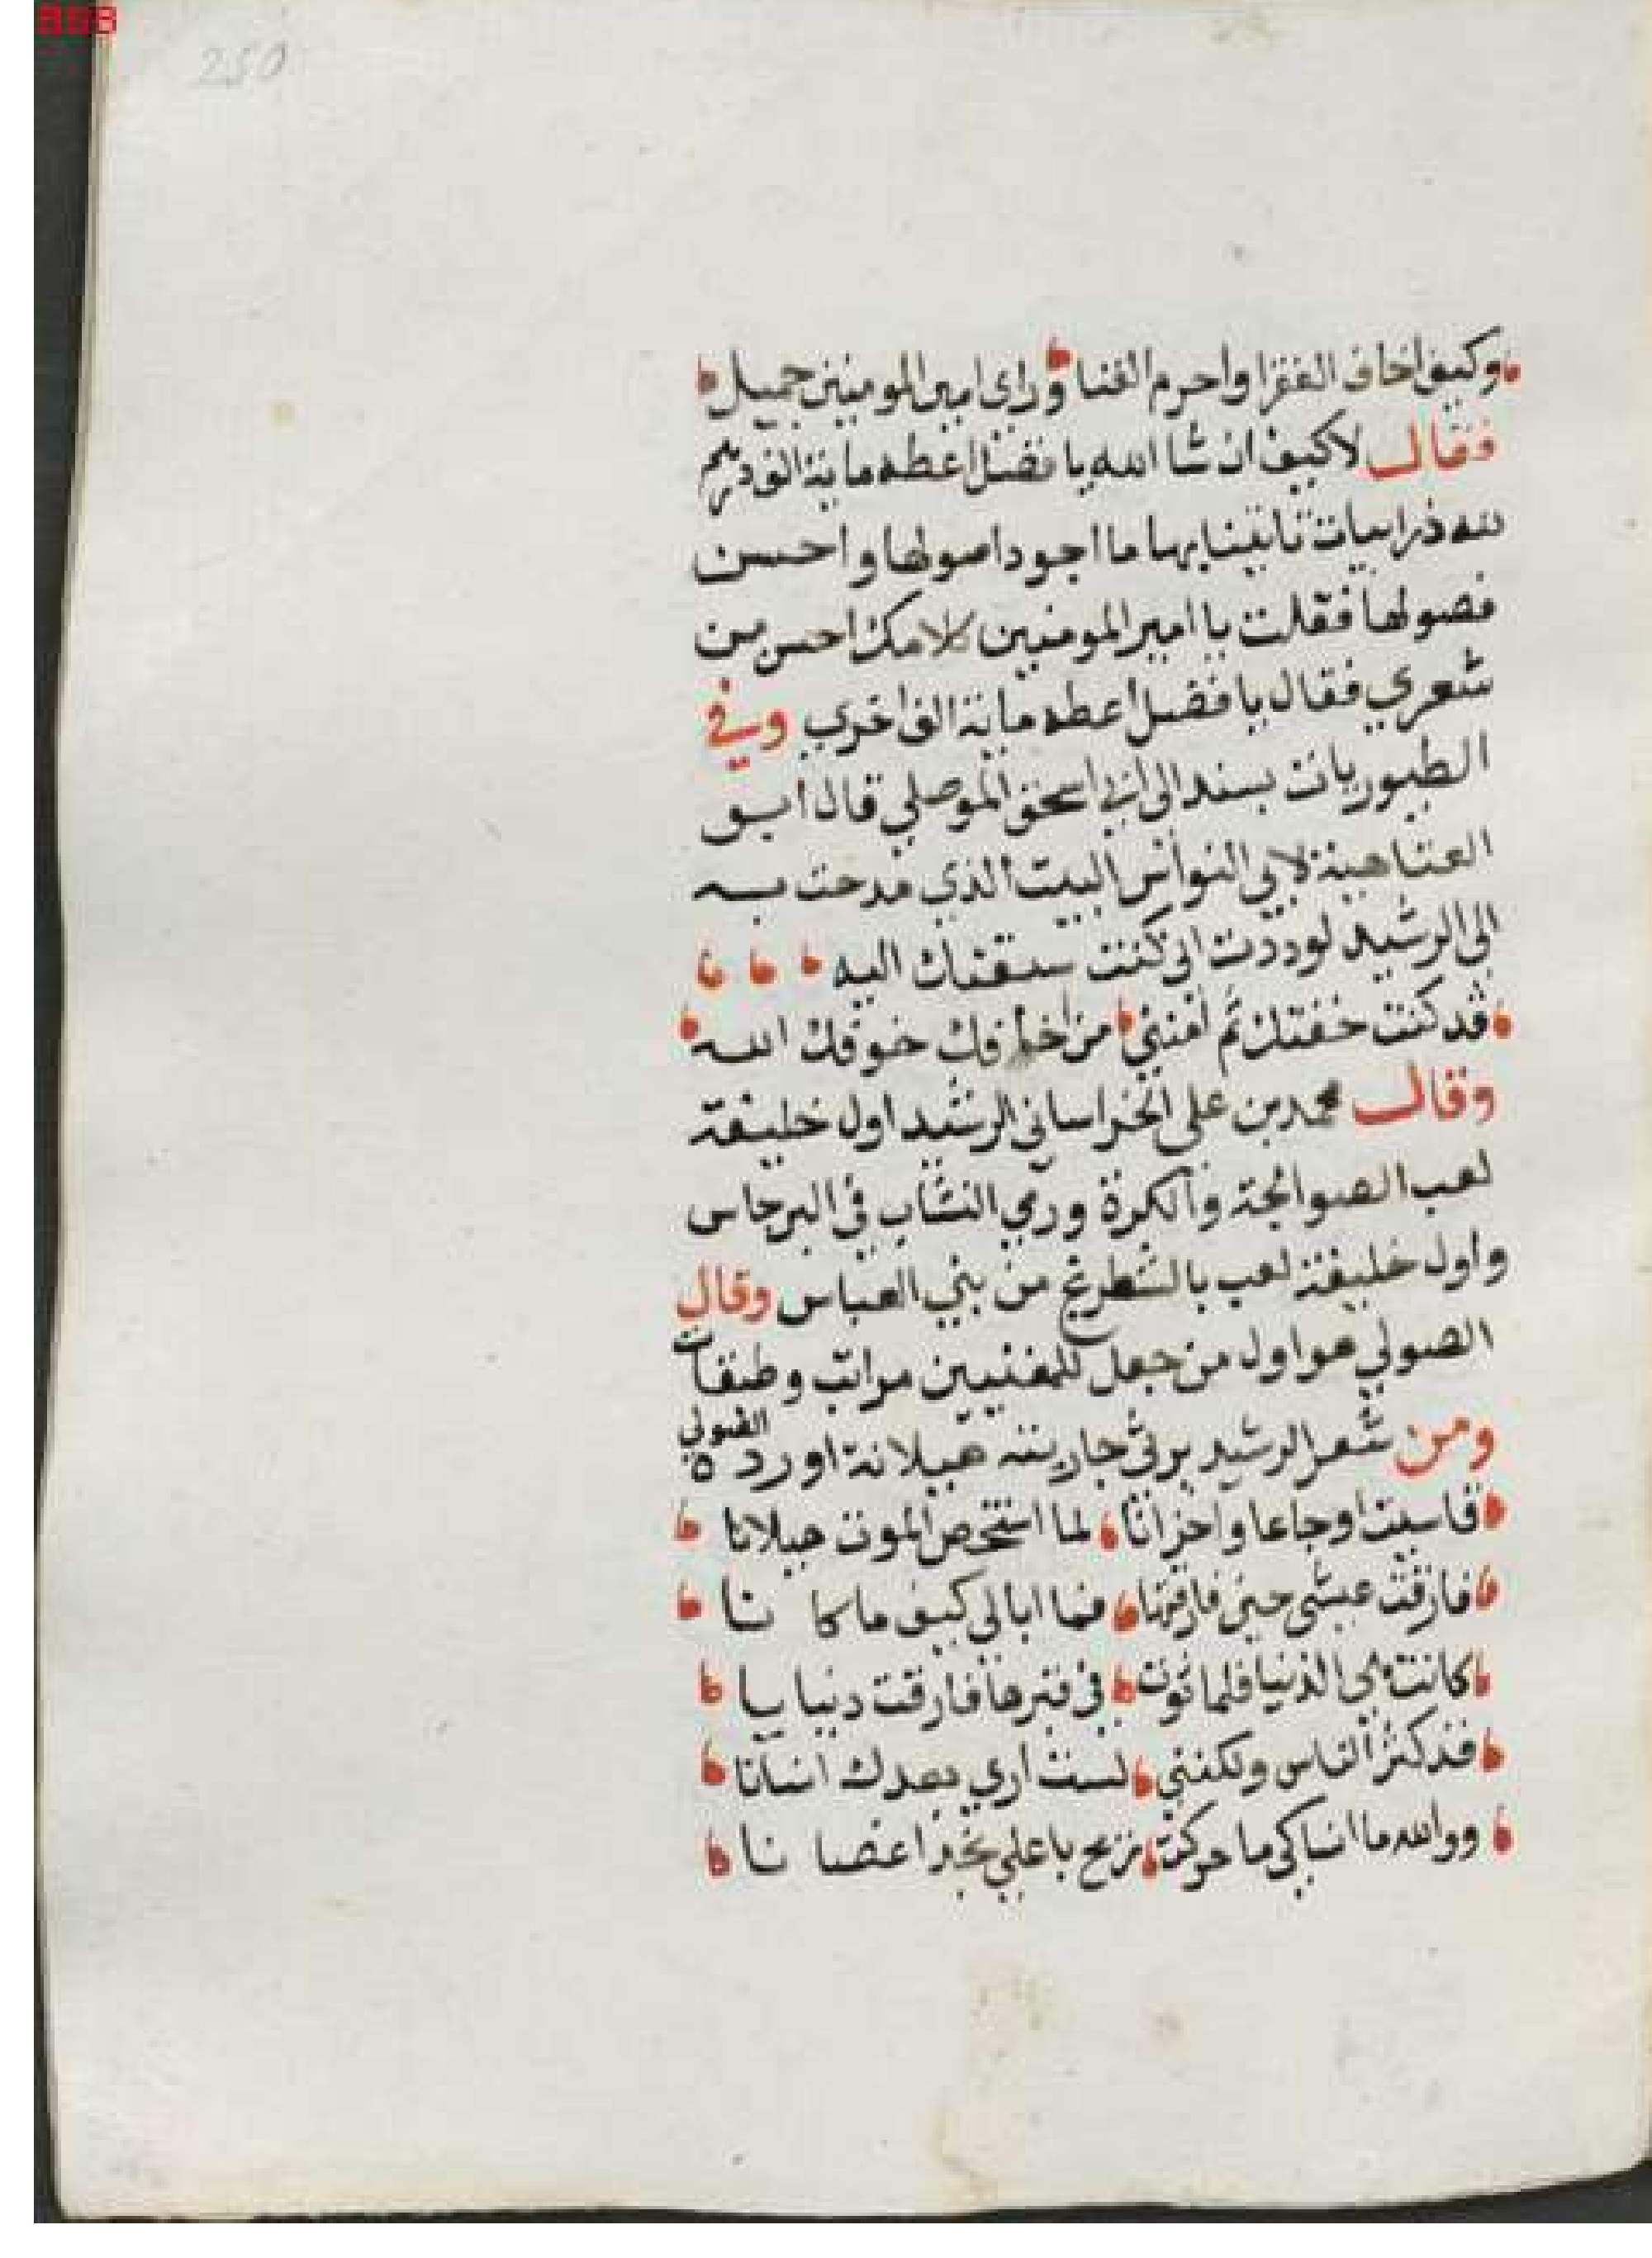 250
وكيف اخاف الفقرا واحرم الغنا وراي امير المومنين جميل
فقال لا كيف ان شا الله يا فضل اعطه ماية الف درهم
لله در ابيات تاتينا بها ما اجود اصولها واحسن
فصولها فقلت يا امير المومنين كلامك احسن من
شعري فقال يا فضل اعطه ماية الف اخري وفي
الطيوريات بسند الى ابي اسحق الموصلي قال ابو
العتاهية لابي النواس البيت الذي مدحت به
الى الرشيد لوددت اني كنت سبقتك اليه
قد كنت خفتك ثم امنني من اخافك خوفك الله
وقال محمد بن على الخراساني الرشيد اول خليفة
لعب الصوالجة والكرة ورمي النشاب في البرجاس
واول خليفة لعب بالشطرنج من بني العباس وقال
الصولي هو اول من جعل للمغنيين مراتب وطبقات
ومن شعر الرشيد يرثي جاريته هيلانة اورده الصولي
قاسيت اوجاعا واحزانا لما استخص الموت هيلانا
فارقت عيشي حين فارقتها فما ابالي كيف ما كانا
كانت هي الدنيا فلما ثوت في قبرها فارقت دنيايا
قد كثر الناس ولكنني لست اري بعدك انسانا
ووالله ما انساكي ما حركت ريح باعلي نجد اغصانا